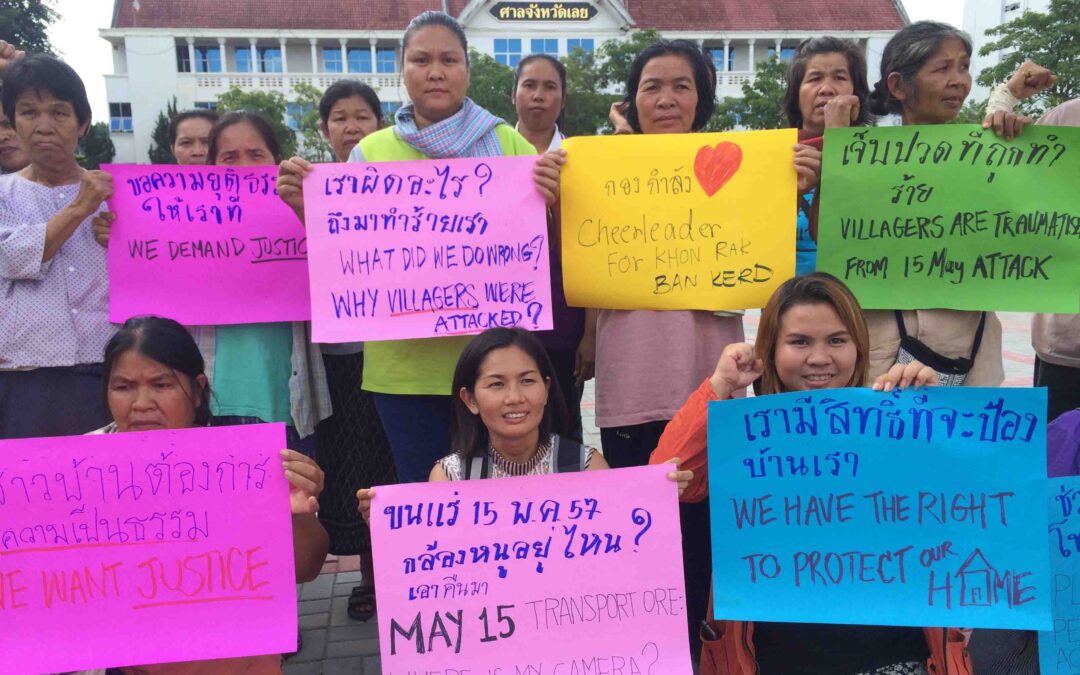 ศาลจังหวัดเลย
ขอความยุติธรรม
ให้เราที่
WE DEMAND JUSTICE
เราผิดอะไร?
ถึงมาทำร้ายเรา
WHAT DID WE DO WRONG?
WHY VILLAGERS WERE
ATTACKED?
กองกำลัง
Cheerleader
For KHON RAK
BAN KERD
เจ็บปวดที่ถูกทำ
ร้าย
VILLAGERS ARE TRAUMATISE
FROM 15 May ATTACK
ชาวบ้านต้องการ
ความเป็นธรรม
WE WANT JUSTICE
ขนแร่ 15 พ.ค 57
กล้องหนูอยู่ไหน?
เอาคืนมา
MAY 15 TRANSPORT ORE:
WHERE IS MY CAMERA?
เรามีสิทธิ์ที่จะป้อง
บ้านเรา
WE HAVE THE RIGHT
TO PROTECT OUR
HOME